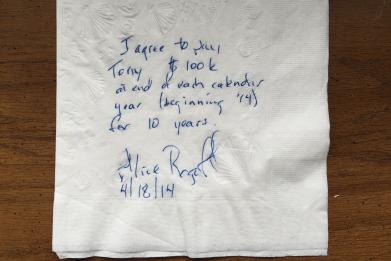 I agree to pay
Tony $100k
at end of each calendar
year (beginning '14)
for 10 years.
Alice Rogoff
4/18/14